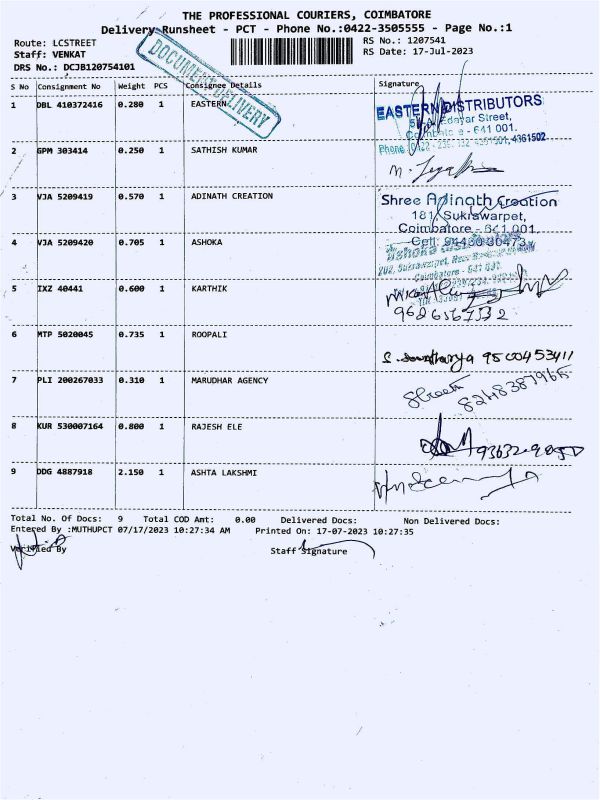 THE PROFESSIONAL COURIERS, COIMBATORE
Delivery Runsheet - PCT - Phone No.:0422-3505555 - Page No.:1
Route: LCSTREET
Staff: VENKAT
DRS No.: DCJB120754101
RS No.: 1207541
RS Date: 17-Jul-2023
DOCUMENT DELIVERY
S No Consignment No Weight PCS Consignee Details Signature
1 DBL 410372416 0.280 1 EASTERN
EASTERN DISTRIBUTORS
Street,
641 001.
Phone 4361502
2 GPM 303414 0.250 1 SATHISH KUMAR
3 VJA 5209419 0.570 1 ADINATH CREATION
Shree Adinath Creation
181, Sukrawarpet,
Coimbatore - 641 001.
Cell: 94430 30473
4 VJA 5209420 0.705 1 ASHOKA
5 IXZ 40441 0.600 1 KARTHIK
6 MTP 5020045 0.735 1 ROOPALI
S. Soundharya 9500453411
7 PLI 200267033 0.310 1 MARUDHAR AGENCY
8 KUR 530007164 0.800 1 RAJESH ELE
9 DDG 4887918 2.150 1 ASHTA LAKSHMI
Total No. Of Docs: 9 Total COD Amt: 0.00 Delivered Docs: Non Delivered Docs:
Entered By :MUTHUPCT 07/17/2023 10:27:34 AM Printed On: 17-07-2023 10:27:35
Verified By Staff Signature